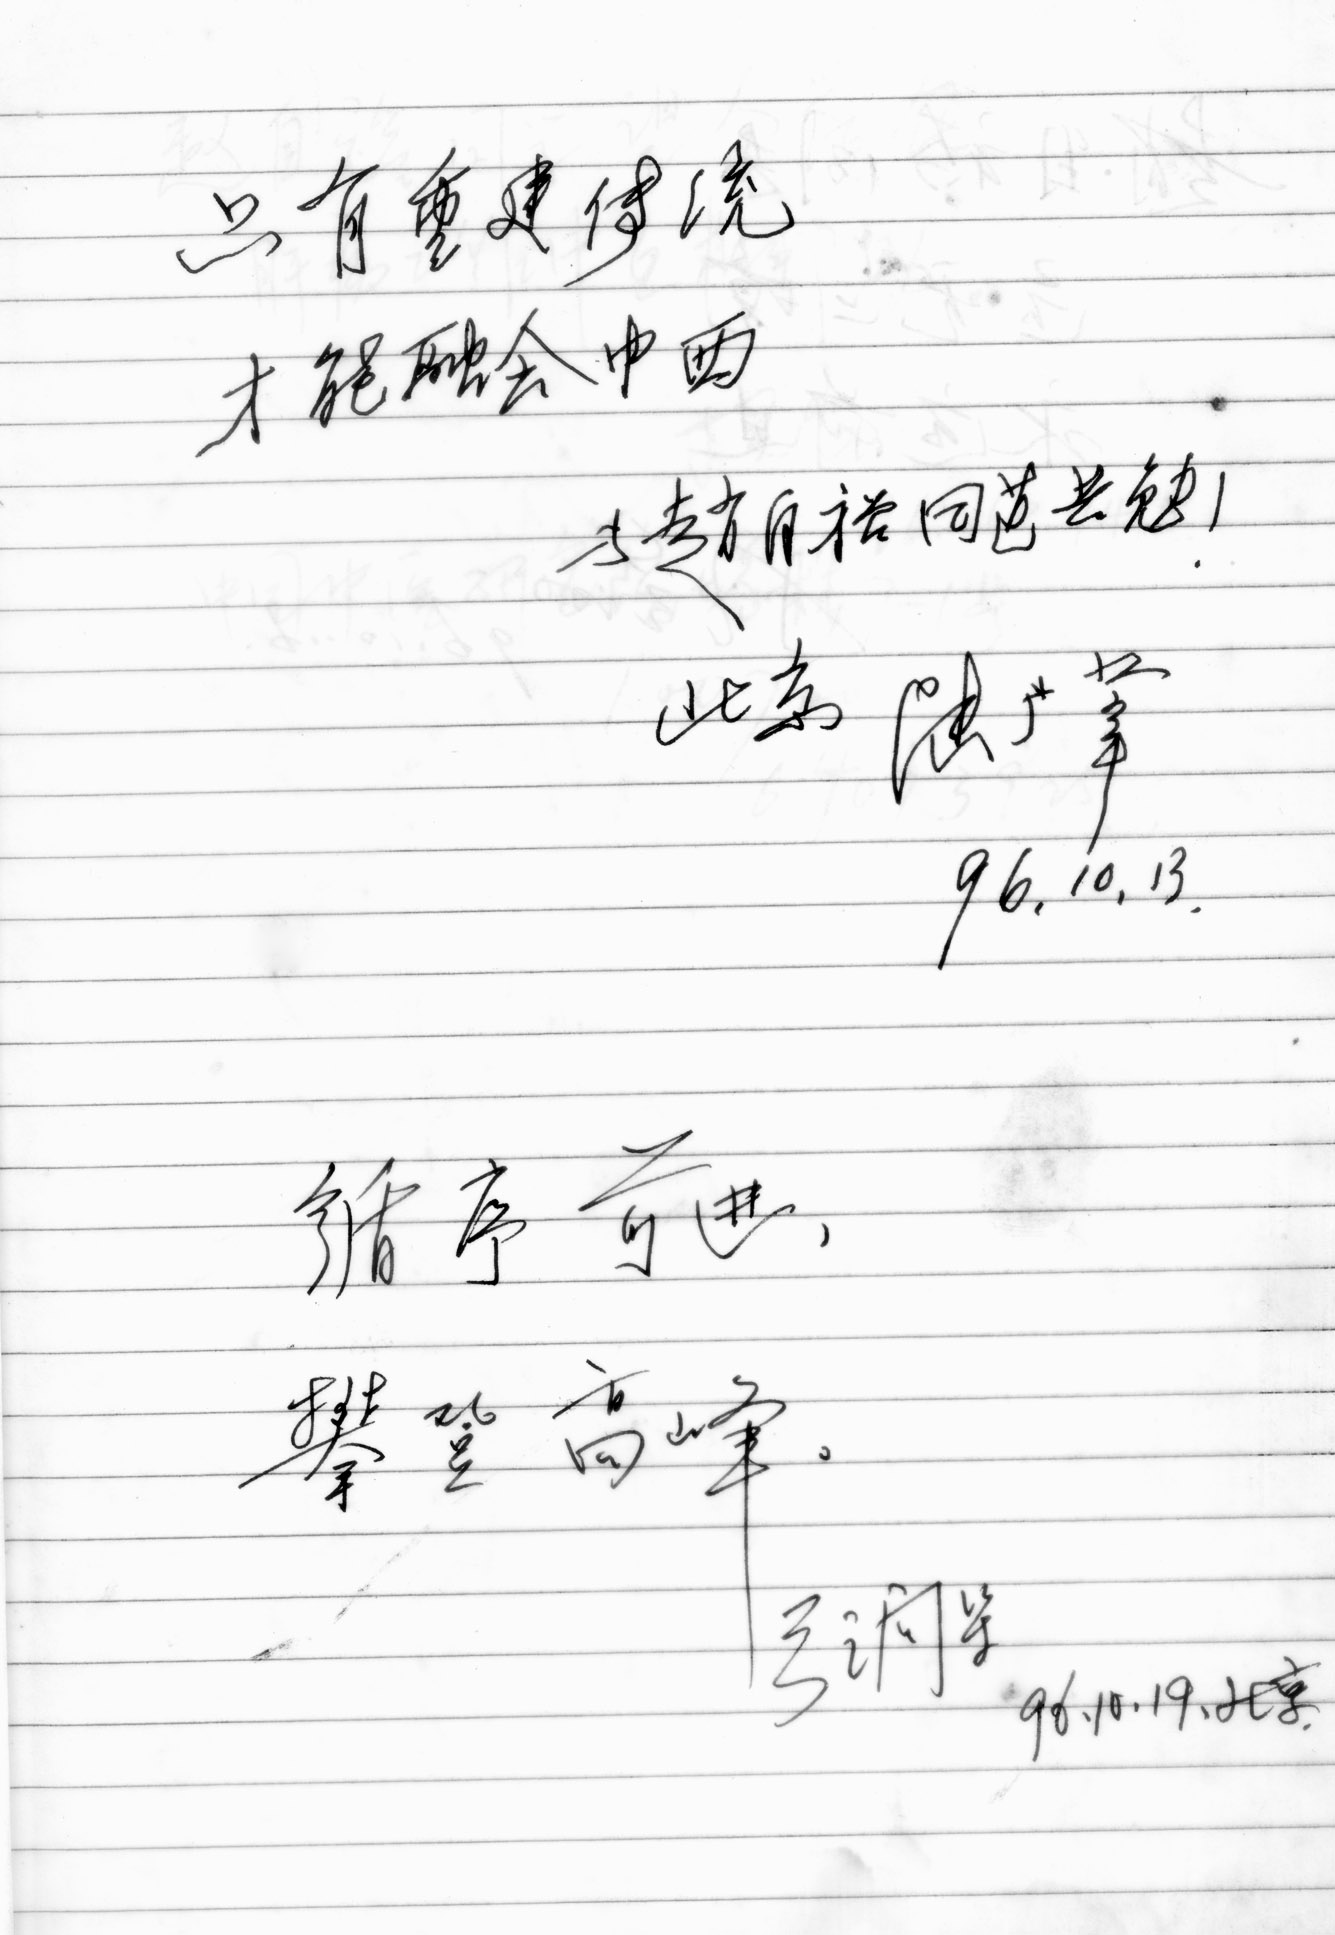 只有重建传统
才能融会中西
与赵自裕同道共勉!
北京 陆广莘
96.10.13.
循序前进,
攀登高峰。
96.10.19.北京.